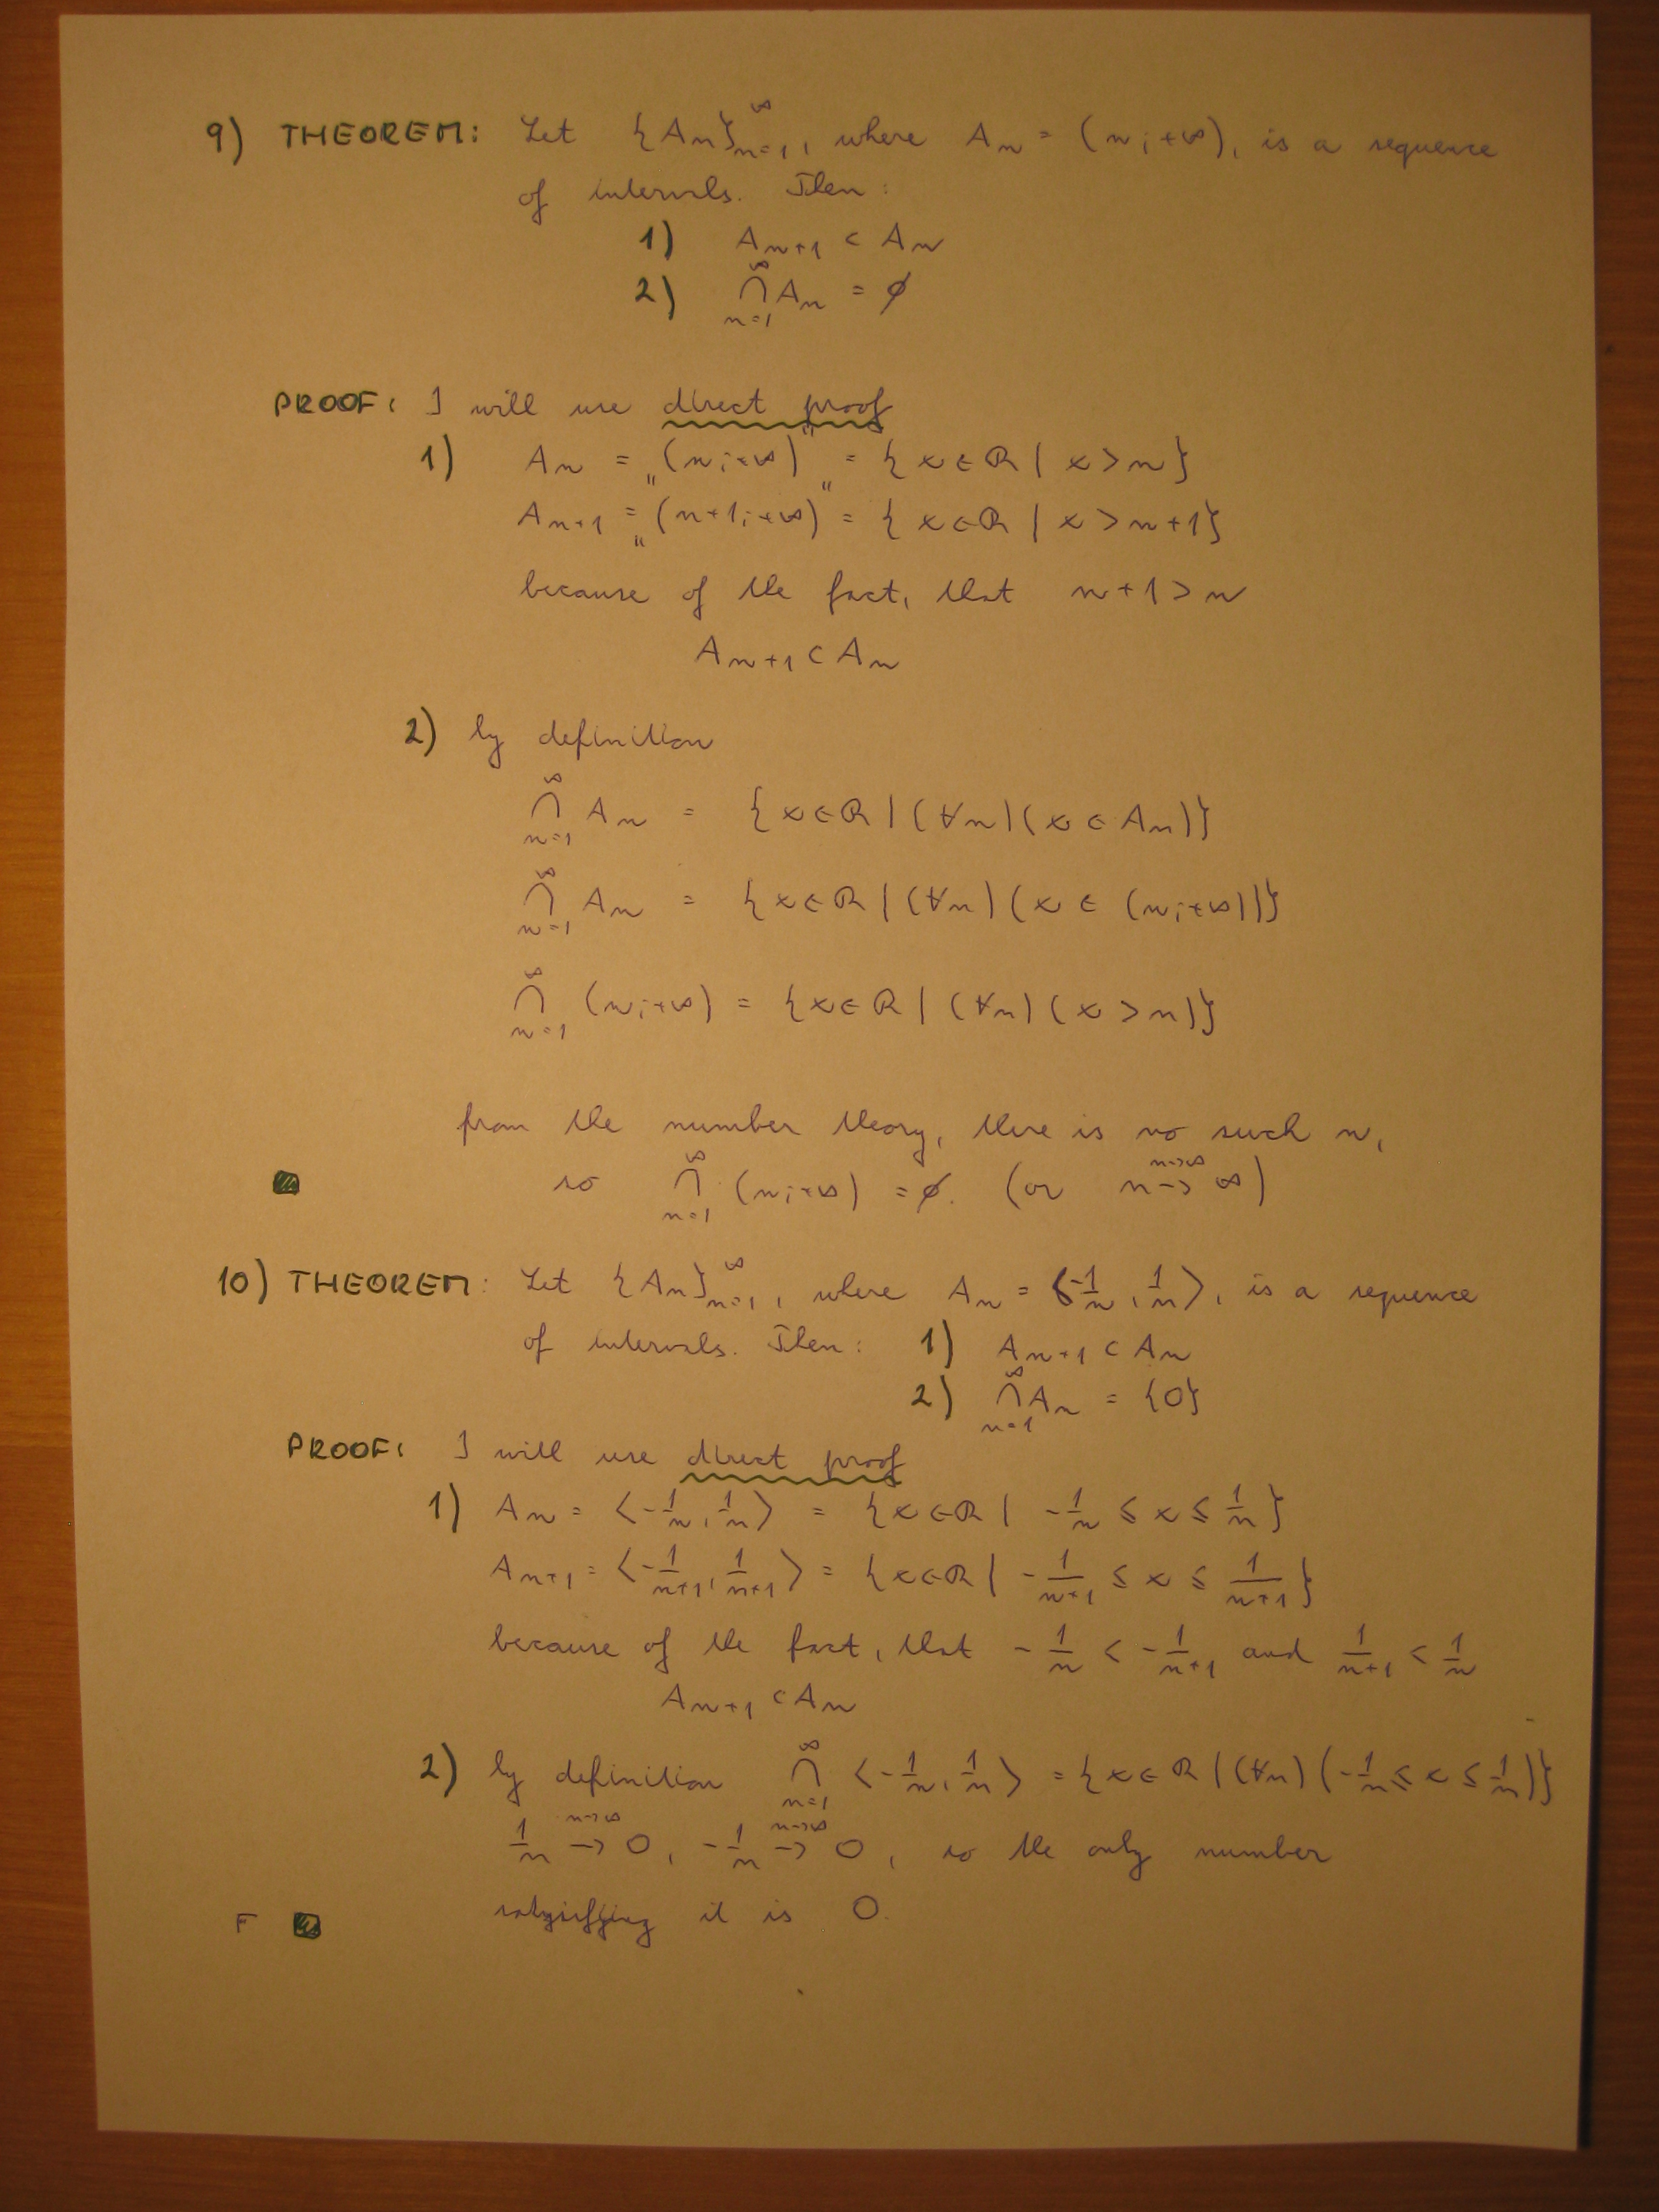 9) THEOREM: Let {Aₙ}ₙ₌₁^∞, where Aₙ = (n; +∞), is a sequence
of intervals. Then:
1) Aₙ₊₁ ⊂ Aₙ
2) ⋂ₙ₌₁^∞ Aₙ = ∅
PROOF: I will use direct proof
1) Aₙ = „(n; +∞)" = {x ∈ R | x > n}
Aₙ₊₁ = „(n+1; +∞)" = {x ∈ R | x > n+1}
because of the fact, that n+1 > n
Aₙ₊₁ ⊂ Aₙ
2) by definition
⋂ₙ₌₁^∞ Aₙ = {x ∈ R | (∀n)(x ∈ Aₙ)}
⋂ₙ₌₁^∞ Aₙ = {x ∈ R | (∀n)(x ∈ (n; +∞))}
⋂ₙ₌₁^∞ (n; +∞) = {x ∈ R | (∀n)(x > n)}
from the number theory, there is no such n,
so ⋂ₙ₌₁^∞ (n; +∞) = ∅. (or n →^{n→∞} ∞)
10) THEOREM: Let {Aₙ}ₙ₌₁^∞, where Aₙ = ⟨-1/n, 1/n⟩, is a sequence
of intervals. Then: 1) Aₙ₊₁ ⊂ Aₙ
2) ⋂ₙ₌₁^∞ Aₙ = {0}
PROOF: I will use direct proof
1) Aₙ = ⟨-1/n, 1/n⟩ = {x ∈ R | -1/n ≤ x ≤ 1/n}
Aₙ₊₁ = ⟨-1/(n+1), 1/(n+1)⟩ = {x ∈ R | -1/(n+1) ≤ x ≤ 1/(n+1)}
because of the fact, that -1/n < -1/(n+1) and 1/(n+1) < 1/n
Aₙ₊₁ ⊂ Aₙ
2) by definition ⋂ₙ₌₁^∞ ⟨-1/n, 1/n⟩ = {x ∈ R | (∀n)(-1/n ≤ x ≤ 1/n)}
1/n →^{n→∞} 0, -1/n →^{n→∞} 0, so the only number
it is 0.
F